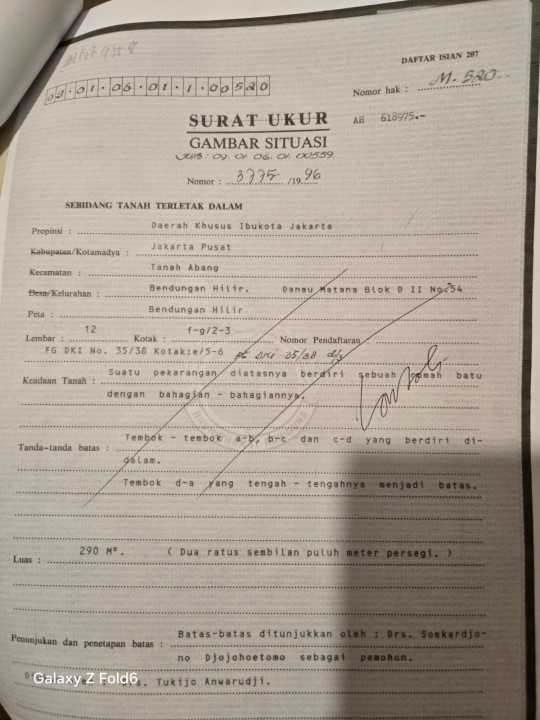 DAFTAR ISIAN 207
09.01.06.01.1.00520
Nomor hak : M. 520
SURAT UKUR
AH 618975.-
GAMBAR SITUASI
09. 01. 06. 01. 00559
Nomor : 3775 /1996
SEBIDANG TANAH TERLETAK DALAM
Propinsi : Daerah Khusus Ibukota Jakarta
Kabupaten/Kotamadya : Jakarta Pusat
Kecamatan : Tanah Abang
Desa/Kelurahan : Bendungan Hilir. Danau Matana Blok D II No.54
Peta : Bendungan Hilir
Lembar : 12 Kotak : f-g/2-3 Nomor Pendaftaran
FG DKI No. 35/38 Kotak:e/5-6 DKI 35/38
Keadaan Tanah : Suatu pekarangan diatasnya berdiri sebuah rumah batu
dengan bahagian - bahagiannya.
Tanda-tanda batas : Tembok - tembok a-b, b-c dan c-d yang berdiri di-
dalam.
Tembok d-a yang tengah - tengahnya menjadi batas.
Luas : 290 M². ( Dua ratus sembilan puluh meter persegi. )
Penunjukan dan penetapan batas : Batas-batas ditunjukkan oleh : Drs. Soekardjo-
no Djojohoetomo sebagai pemohon.
Tukijo Anwarudji.
Galaxy Z Fold6